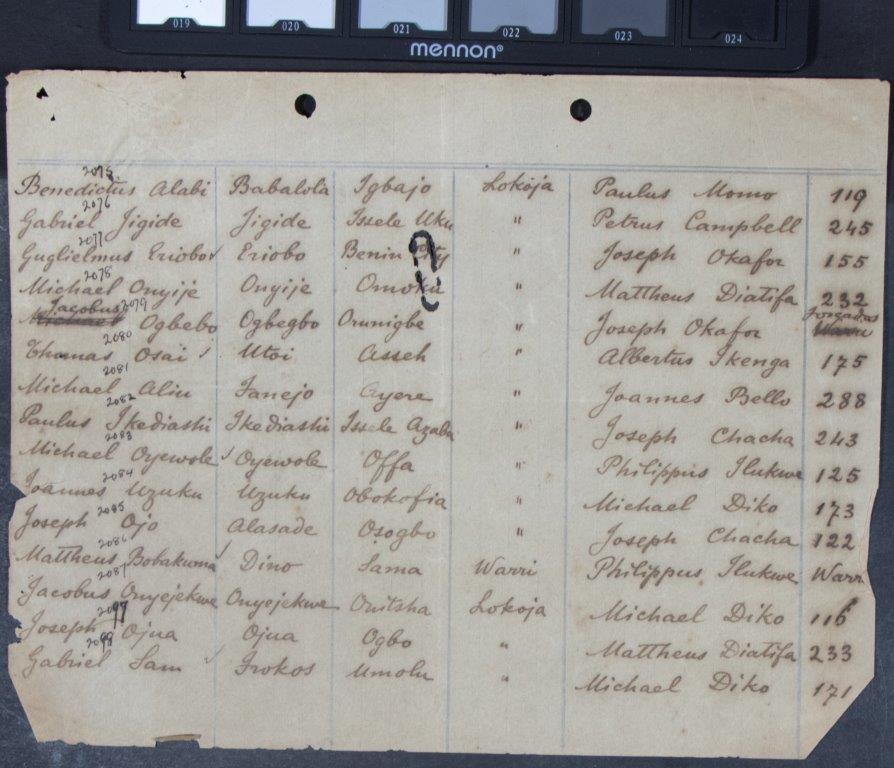 019 020 021 022 023 024
mennon®
2075
Benedictus Alabi Babalola Igbajo Lokoja Paulus Momo 119
2076
Gabriel Jigide Jigide Issele Uku " Petrus Campbell 245
2077
Guglielmus Eriobo Eriobo Benin City " Joseph Okafor 155
2078
Michael Onyije Onyije Omoku " Mattheus Diatifa 232
Jacobus 2079 Forcados
Michael Ogbebo Ogbegbo Orunigbe " Joseph Okafor Warri
2080
Thomas Osai Utoi Asseh " Albertus Ikenga 175
2081
Michael Aliu Fanejo Ayere " Joannes Bello 288
2082
Paulus Ikediashi Ikediashi Issele Azaba " Joseph Chacha 243
2083
Michael Oyewole Oyewole Offa " Philippus Ilukwe 125
2084
Joannes Uzuku Uzuku Obokofia " Michael Diko 173
2085
Joseph Ojo Alasade Osogbo " Joseph Chacha 122
2086
Mattheus Bobakuma Dino Sama Warri Philippus Ilukwe Warri
2087
Jacobus Onyejekwe Onyejekwe Onitsha Lokoja Michael Diko 116
Joseph Ojua Ojua Ogbo " Mattheus Diatifa 233
Gabriel Sam Irokos Umolu " Michael Diko 171